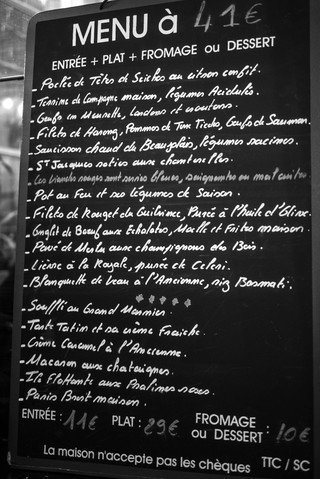 MENU à 41€
ENTRÉE + PLAT + FROMAGE OU DESSERT
- Poêlée de Têtes de Seiches au citron confit.
- Terrine de Campagne maison, légumes Acidulés.
- Oeufs en Meurette, lardons et croutons.
- Filets de Hareng, Pommes de Terre Tiedes, Oeufs de Saumon.
- Saucisson chaud du Beaujolais, légumes racines.
- St Jacques roties aux chanterelles.
- Les viandes rouges sont servies bleues, saignantes ou mal cuites.
- Pot au Feu et ses légumes de Saison.
- Filets de Rouget du Guilvinec, Purée à l'Huile d'Olive.
- Onglet de Bœuf aux Echalotes, Moelle et Frites maison.
- Pavé de Merlu aux champignons des Bois.
- Lièvre à la Royale, purée de Celeri.
- Blanquette de Veau à l'Ancienne, riz Basmati.
- Soufflé au Grand Marnier.
- Tarte Tatin et sa crème Fraiche.
- Crème Caramel à l'Ancienne.
- Macaron aux chataignes.
- Ile Flottante aux Pralines roses.
- Paris Brest maison.
ENTRÉE : 11€ PLAT : 29€ FROMAGE OU DESSERT : 10€
La maison n'accepte pas les chèques TTC / SC